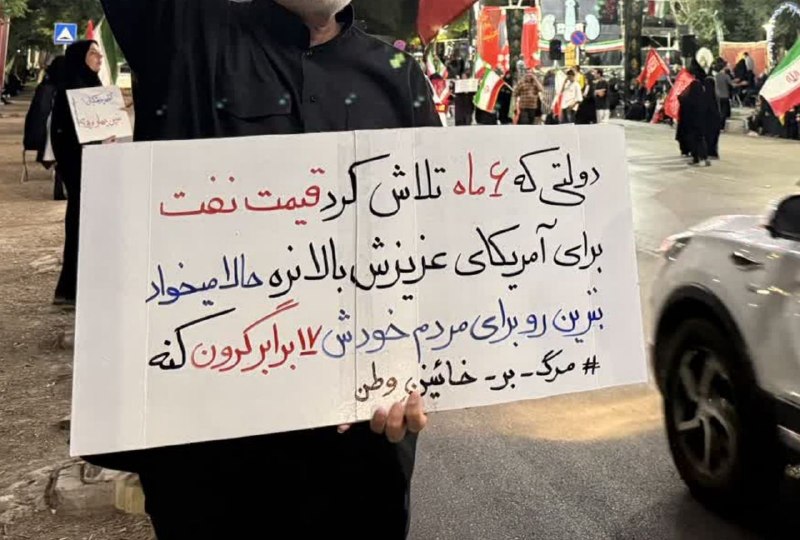 دولتی که ۶ ماه تلاش کرد قیمت نفت
برای آمریکای عزیزش بالا نره حالا میخواد
بنزین رو برای مردم خودش ۱۷ برابر گرون کنه
# مرگ - بر - خائنین وطن